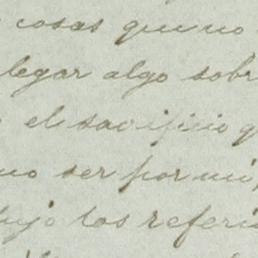 cosas que no
legar algo sobr
el sacrificio q
no ser por mi,
bajo los referi